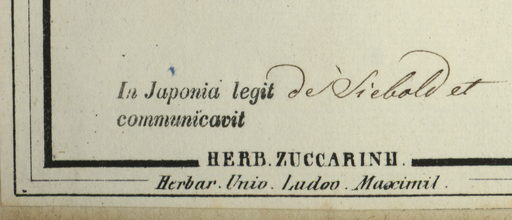 In Japonia legit de Siebold et
communicavit
HERB. ZUCCARINII.
Herbar. Unio. Ludov. Maximil.